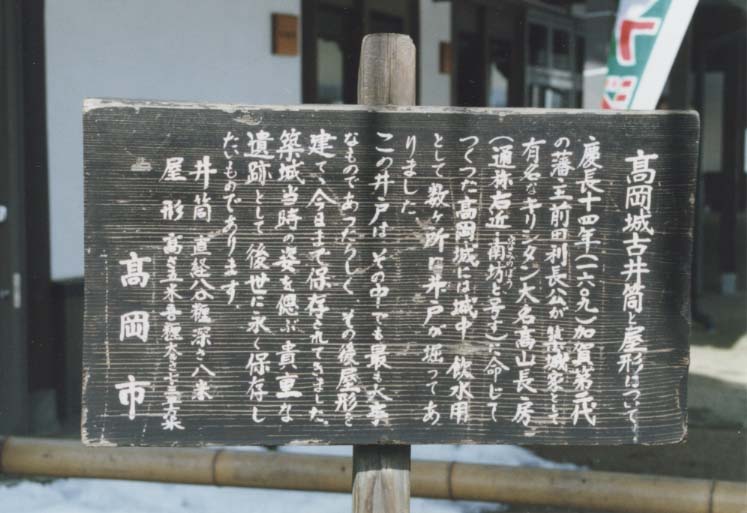 高岡城古井筒と屋形について
慶長十四年(一六〇九)加賀第二代
の藩主前田利長公が築城家として
有名なキリシタン大名高山長房
(通称右近 南坊と号す)に命じて
つくった高岡城には城中の飲水用
として数ヶ所に井戸が堀ってあ
りました
この井戸はその中でも最も大事
なものであつたらしく、その後屋形を
建て今日まで保存されてきました。
築城当時の姿を偲ぶ貴重な
遺跡として後世に永く保存し
たいものであります。
井筒 直経八〇糎 深さ八米
屋形 高さ二米
高岡市